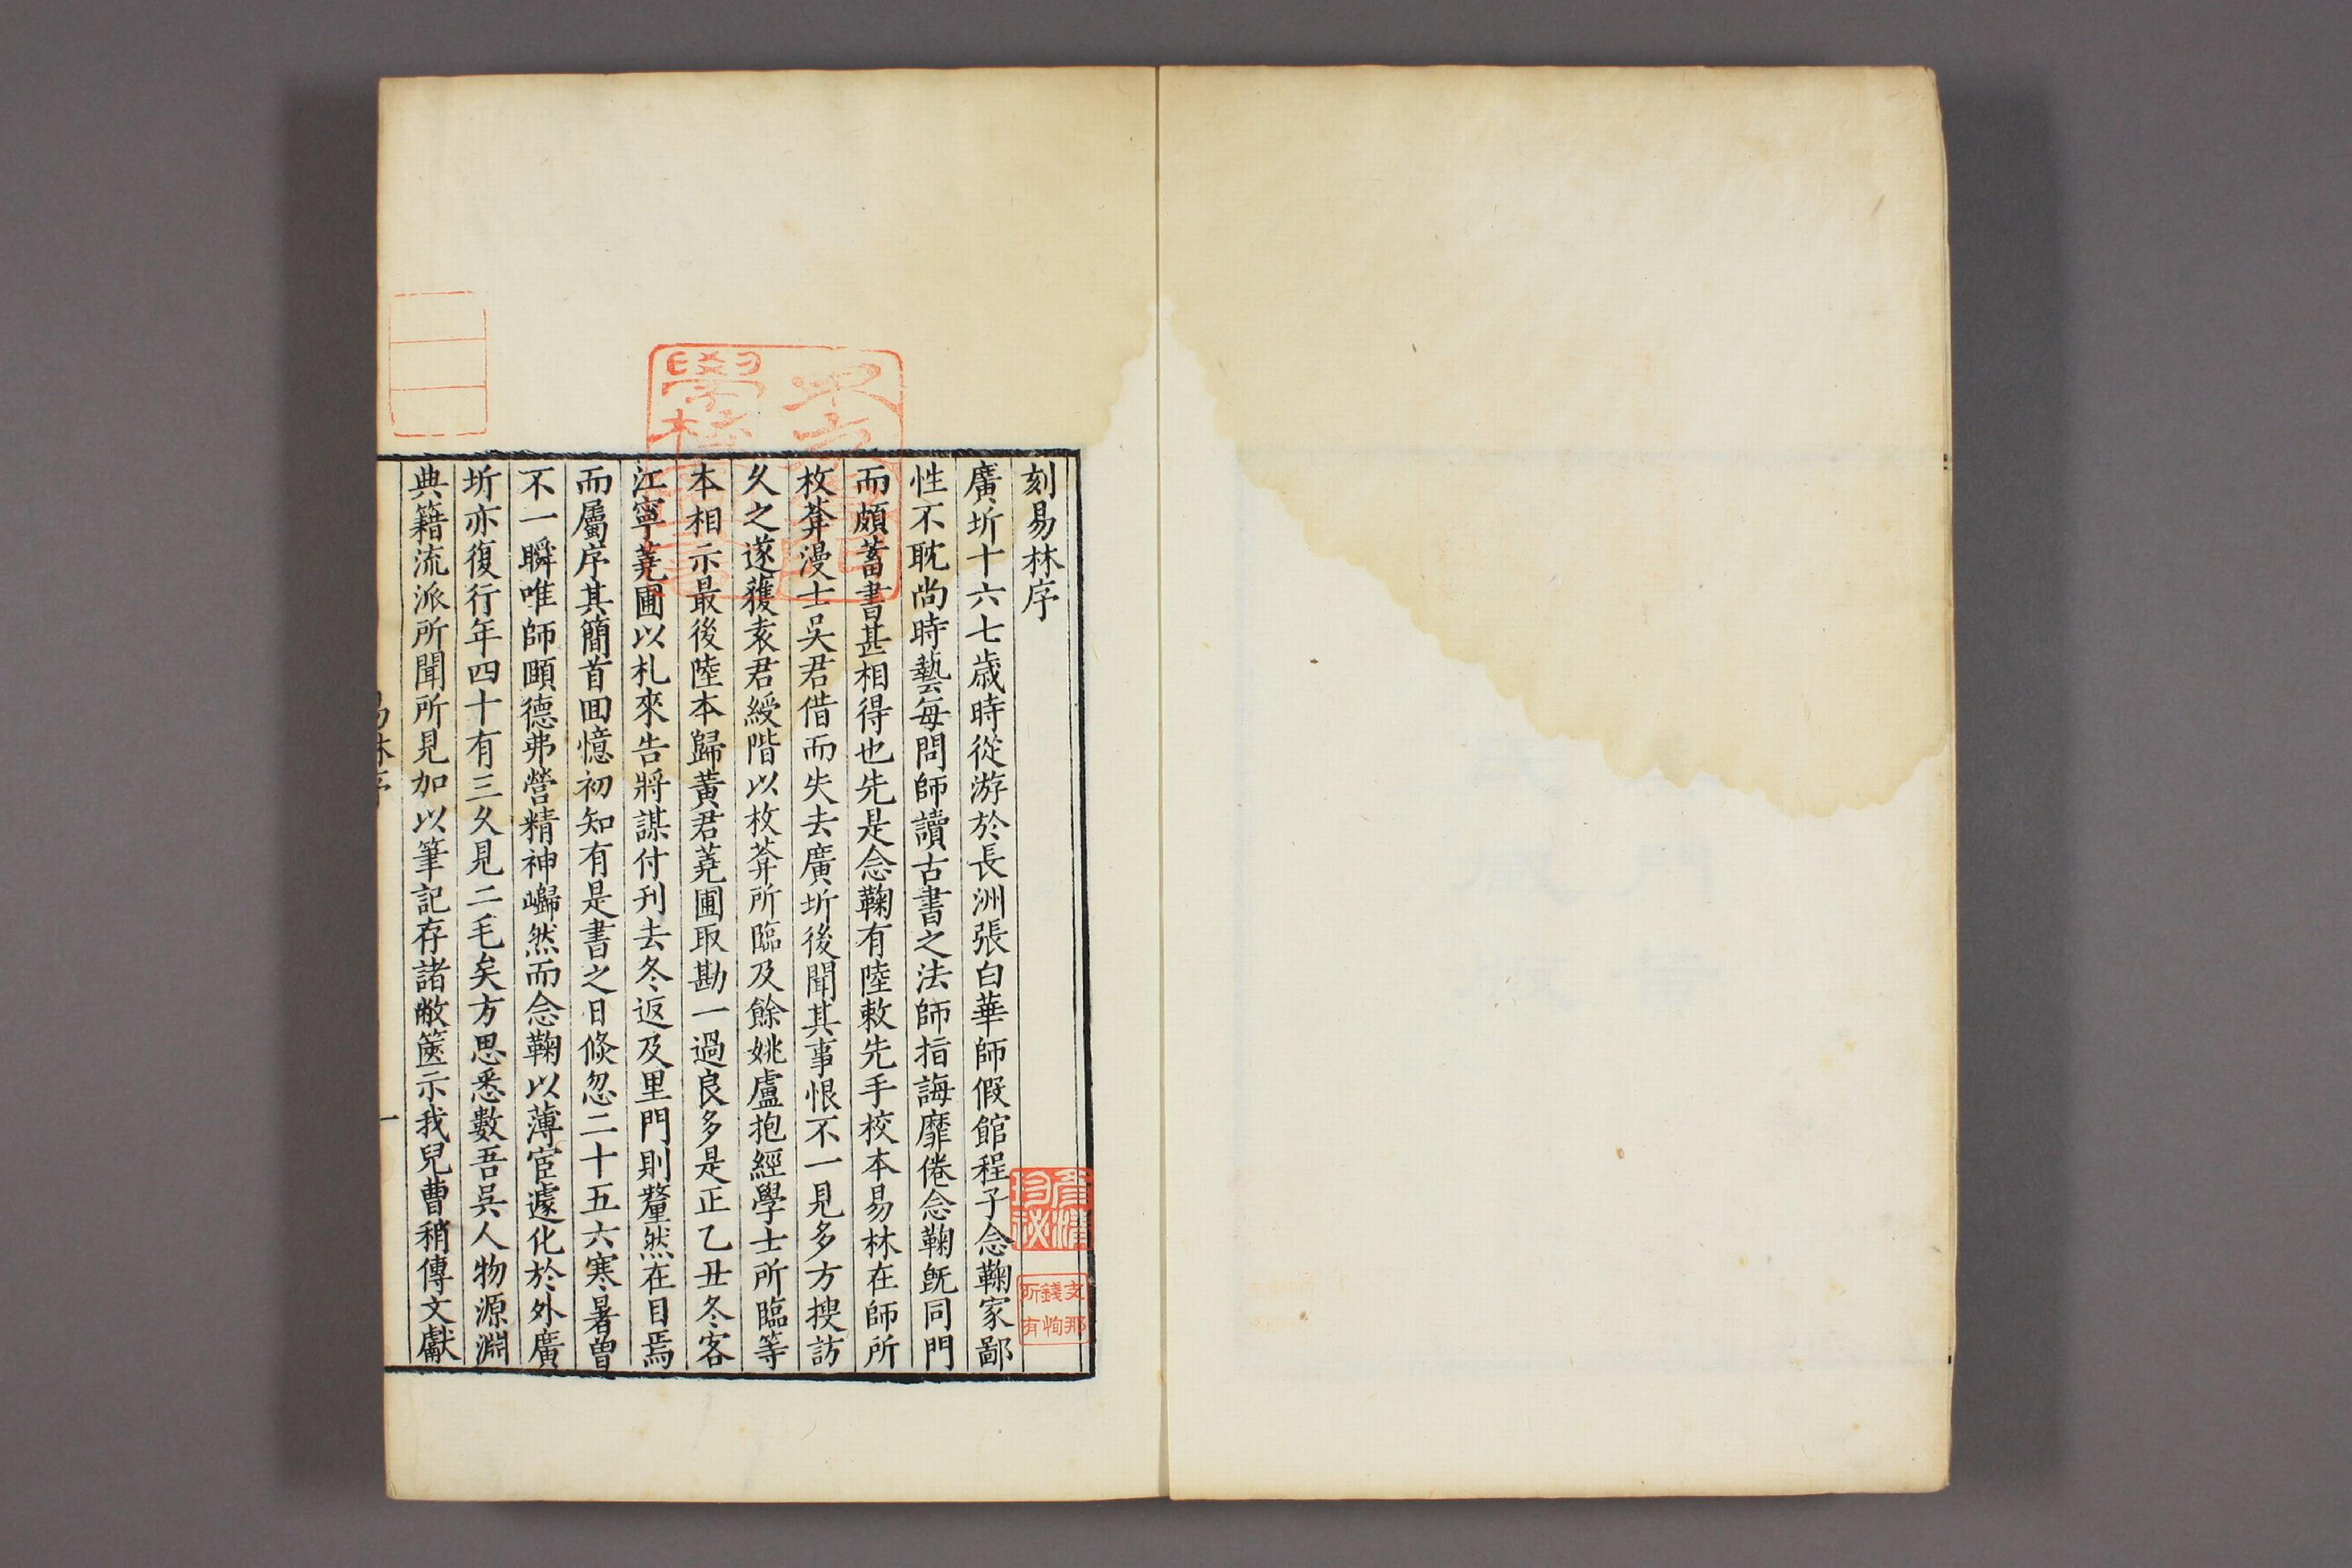 刻易林序
廣圻十六七歲時從游於長洲張白華師假館程子念鞠家鄙
性不耽尚時藝每問師讀古書之法師指誨靡倦念鞠旣同門
而頗蓄書甚相得也先是念鞠有陸敕先手校本易林在師所
枚菴漫士吳君借而失去廣圻後聞其事恨不一見多方搜訪
久之遂獲袁君綬階以枚菴所臨及餘姚盧抱經學士所臨等
本相示最後陸本歸黃君蕘圃取勘一過良多是正乙丑冬客
江寧蕘圃以札來告將謀付刊去冬返及里門則鼇然在目焉
而屬序其簡首回憶初知有是書之日倏忽二十五六寒暑曾
不一瞬唯師頤德弗營精神巋然而念鞠以薄宦遽化於外廣
圻亦復行年四十有三久見二毛矣方思悉數吾吳人物源淵
典籍流派所聞所見加以筆記存諸敝篋示我兒曹稍傳文獻
易林序
一
文那
錢恂
所有